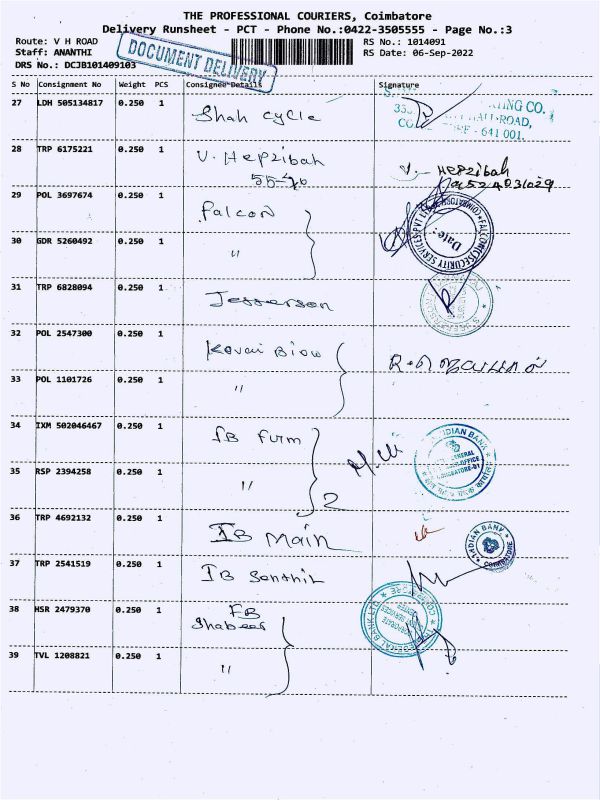 THE PROFESSIONAL COURIERS, Coimbatore
Delivery Runsheet - PCT - Phone No.:0422-3505555 - Page No.:3
Route: V H ROAD
RS No.: 1014091
Staff: ANANTHI
DOCUMENT DELIVERY
RS Date: 06-Sep-2022
DRS No.: DCJB101409103
S No Consignment No Weight PCS Consignee Details Signature
27 LDH 505134817 0.250 1 Shah cycle
KING CO.
ROAD,
641 001.
28 TRP 6175221 0.250 1 V. Hepzibah
V. Hepzibah
29 POL 3697674 0.250 1 Falcon
FALCON SECURITY SERVICES PVT LTD
Date:
30 GDR 5260492 0.250 1 "
31 TRP 6828094 0.250 1 Jefferson
32 POL 2547300 0.250 1 Kovai
33 POL 1101726 0.250 1 "
34 IXM 502046467 0.250 1 IB Firm
INDIAN BANK
35 RSP 2394258 0.250 1 "
2
36 TRP 4692132 0.250 1 IB Main
INDIAN BANK
COIMBATORE
37 TRP 2541519 0.250 1 IB Senthil
38 HSR 2479370 0.250 1 FB
Shabeer
FEDERAL BANK LTD
39 TVL 1208821 0.250 1 "